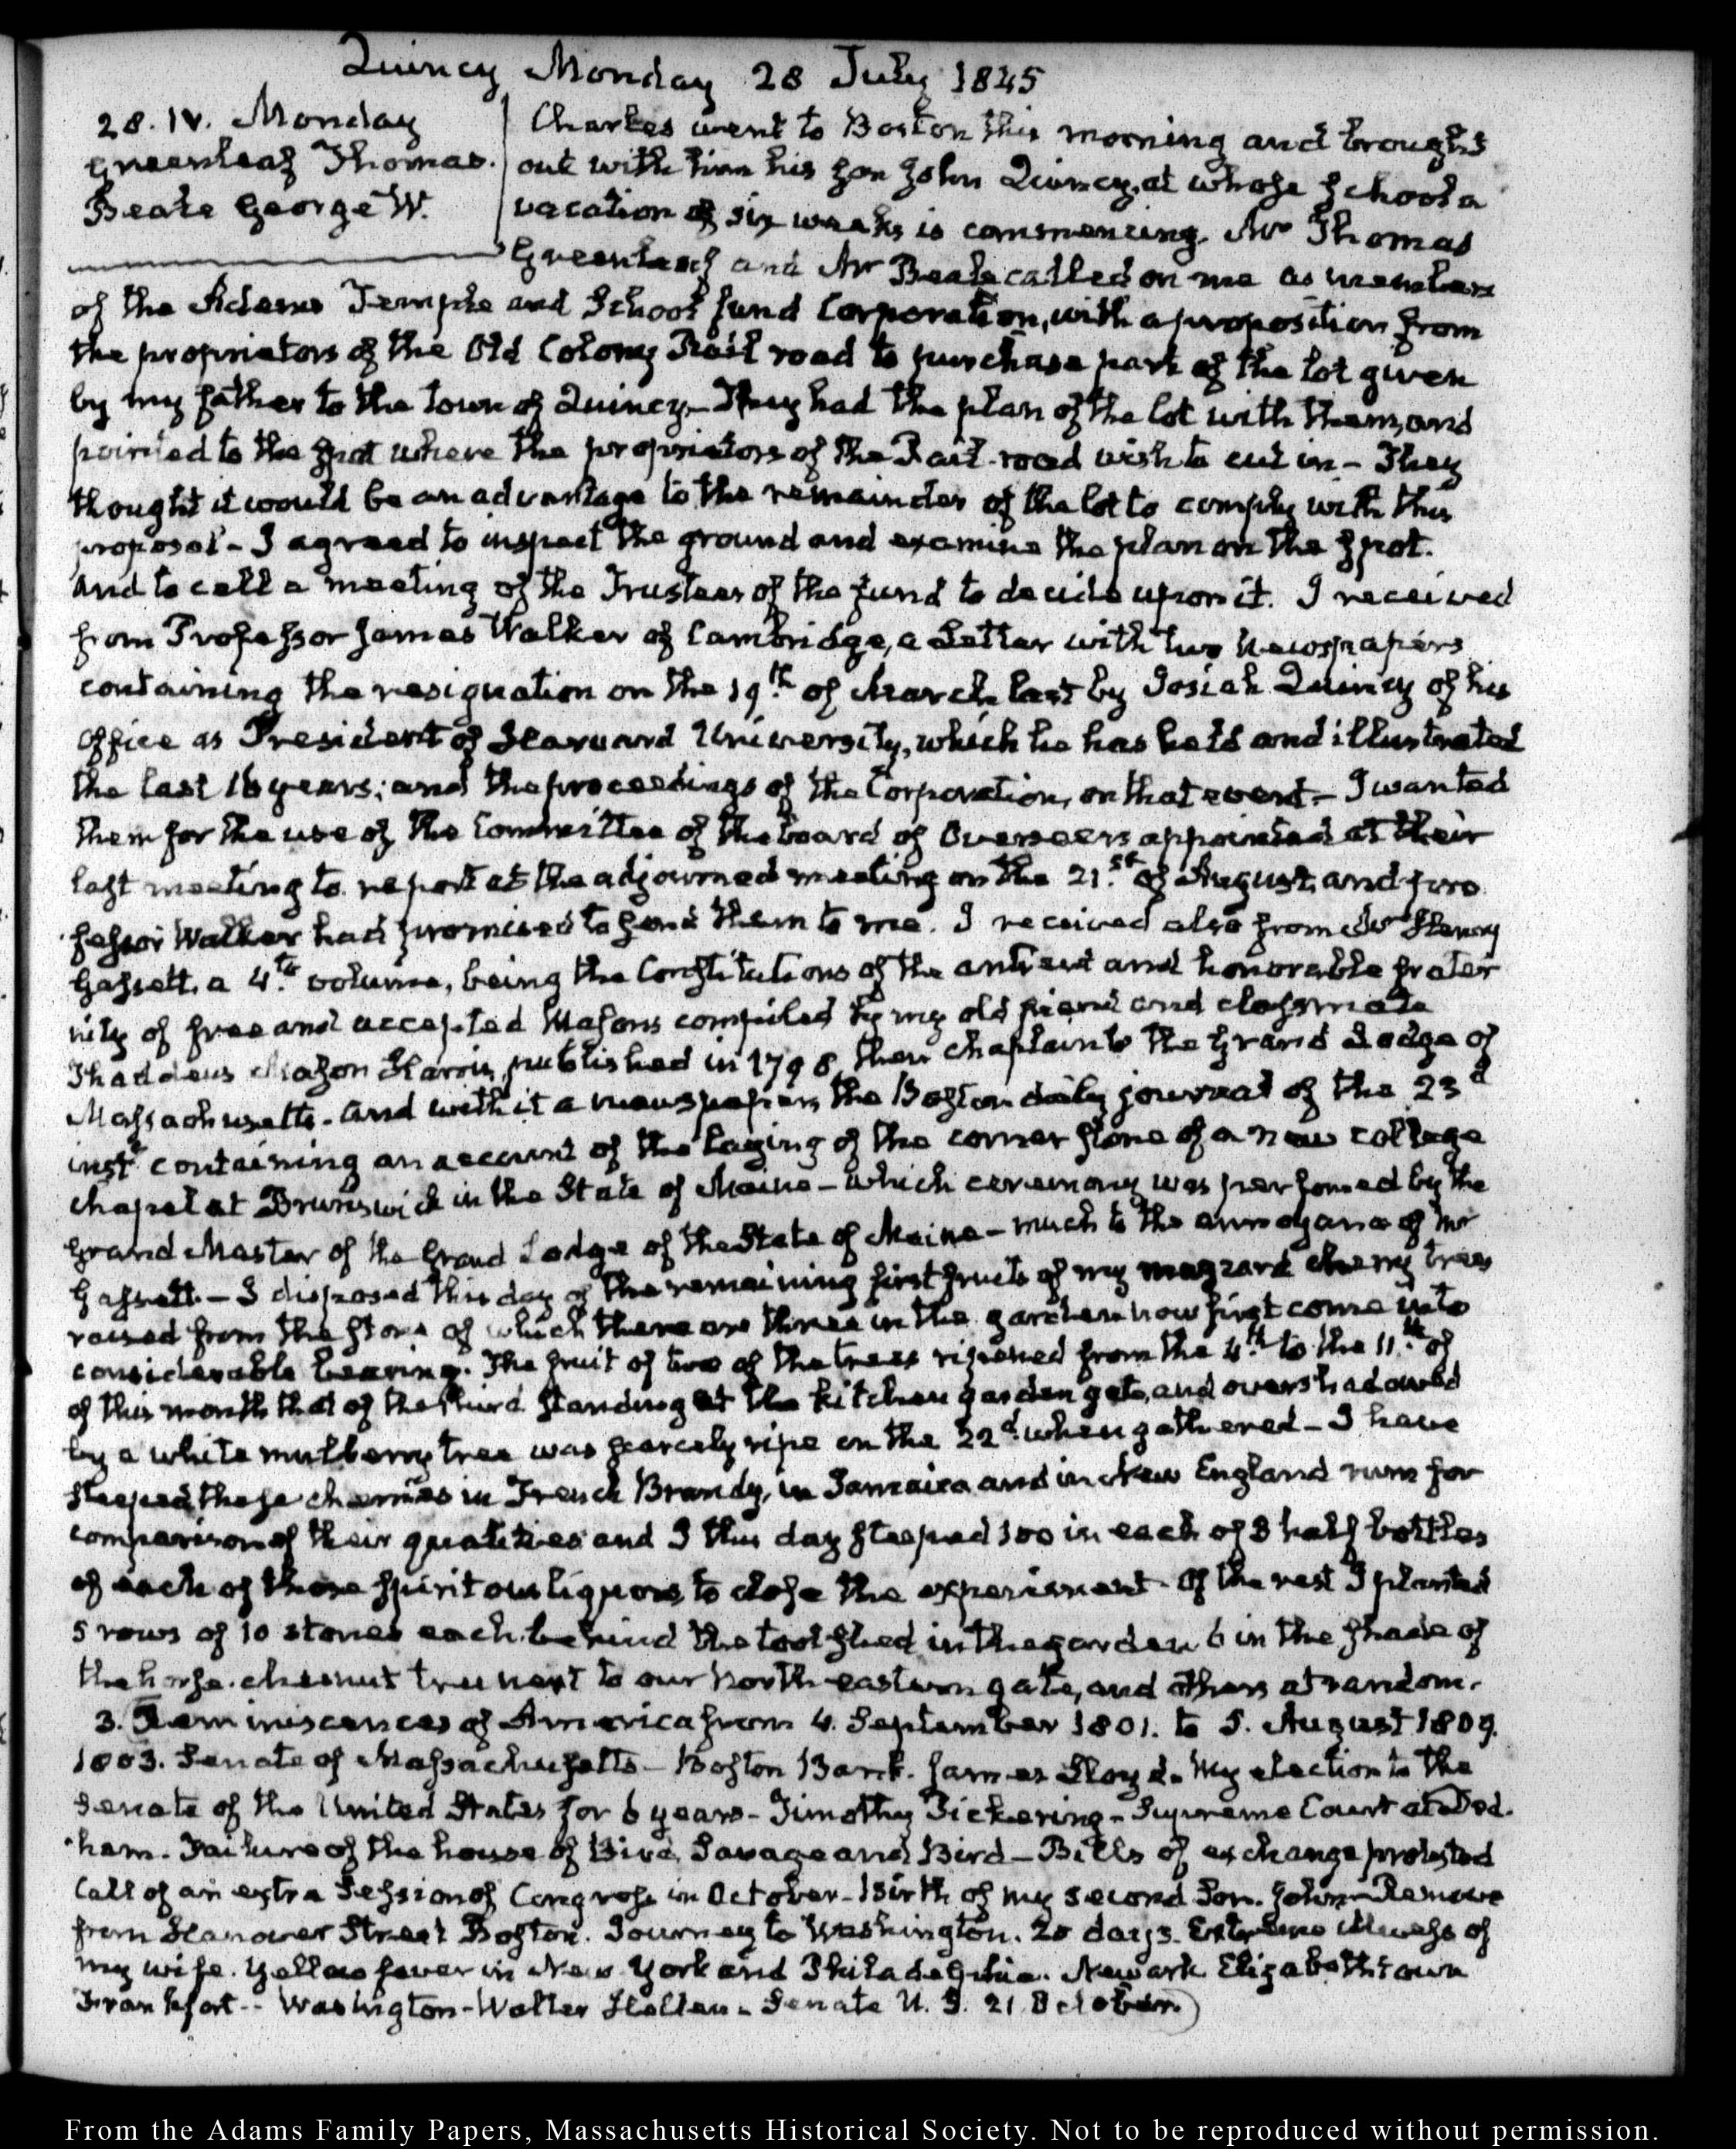 Quincy Monday 28 July 1845
28. IV. Monday
Greenleaf Thomas.
Beale George W.
Charles went to Boston this morning and brought
out with him his son John Quincy, at whose school a
vacation of six weeks is commencing. Mr Thomas
Greenleaf and Mr Beale called on me as members
of the Adams Temple and School fund Corporation, with a proposition from
the proprietors of the Old Colony Rail road to purchase part of the lot given
by my father to the town of Quincy – They had the plan of the lot with them, and
pointed to the spot where the proprietors of the Rail-road wish to cut in – They
thought it would be an advantage to the remainder of the lot to comply with this
proposal – I agreed to inspect the ground and examine the plan on the spot.
and to call a meeting of the Trustees of the fund to decide upon it. I received
from Professor James Walker of Cambridge, a Letter with two Newspapers
containing the resignation on the 19th of March last by Josiah Quincy of his
Office as President of Harvard University, which he has held and illustrated
the last 16 years; and the proceedings of the Corporation, on that event – I wanted
them for the use of the Committee of the board of Overseers appointed at their
last meeting to report at the adjourned meeting on the 21st of August, and pro
fessor Walker had promised to send them to me. I received also from Mr Henry
Gassett, a 4th volume, being the Constitutions of the antient and honorable frater
nity of free and accepted Masons compiled by my old friend and classmate
Thaddeus Mason Harris, published in 1798, then chaplain to the Grand Lodge of
Massachusetts. and with it a newspaper, the Boston daily journal of the 23d
inst containing an account of the laying of the corner stone of a new college
chapel at Brunswick in the State of Maine – which ceremony was performed by the
Grand Master of the Grand Lodge of the State of Maine – much to the annoyance of Mr
Gassett. – I disposed this day of the remaining first fruits of my mazzard cherry trees
raised from the stone of which there are three in the garden now first come into
considerable bearing. The fruit of two of the trees ripened from the 4th to the 11th of
of this month that of the third standing at the kitchen garden gate, and overshadowed
by a white mulberry tree was scarcely ripe on the 22d when gathered – I have
steeped these cherries in French Brandy, in Jamaica and in New England rum for
comparison of their qualities and I this day steeped 100 in each of 3 half bottles
of each of those spiritous liquors, to close the experiment. Of the rest I planted
5 rows of 10 stones each behind the tool shed in the garden 6 in the shade of
the horse-chesnut tree next to our North-eastern gate, and others at random.
3. Reminiscences of America from 4. September 1801. to 5. August 1809.
1803. Senate of Massachusetts – Boston Bank. James Lloyd. My election to the
Senate of the United States for 6 years – Timothy Pickering – Supreme Court at Ded.
ham. Failure of the house of Bird Savage and Bird – Bills of exchange protested
Call of an extra Session of Congress in October – Birth of my second Son. John – Remove
from Hanover Street Boston. Journey to Washington. 20 days. Extreme illness of
my wife. Yellow fever in New York and Philadelphia. Newark Elizabethtown
Frankfort -- Washington – Walter Hellen – Senate U. S. 21. October)
From the Adams Family Papers, Massachusetts Historical Society. Not to be reproduced without permission.